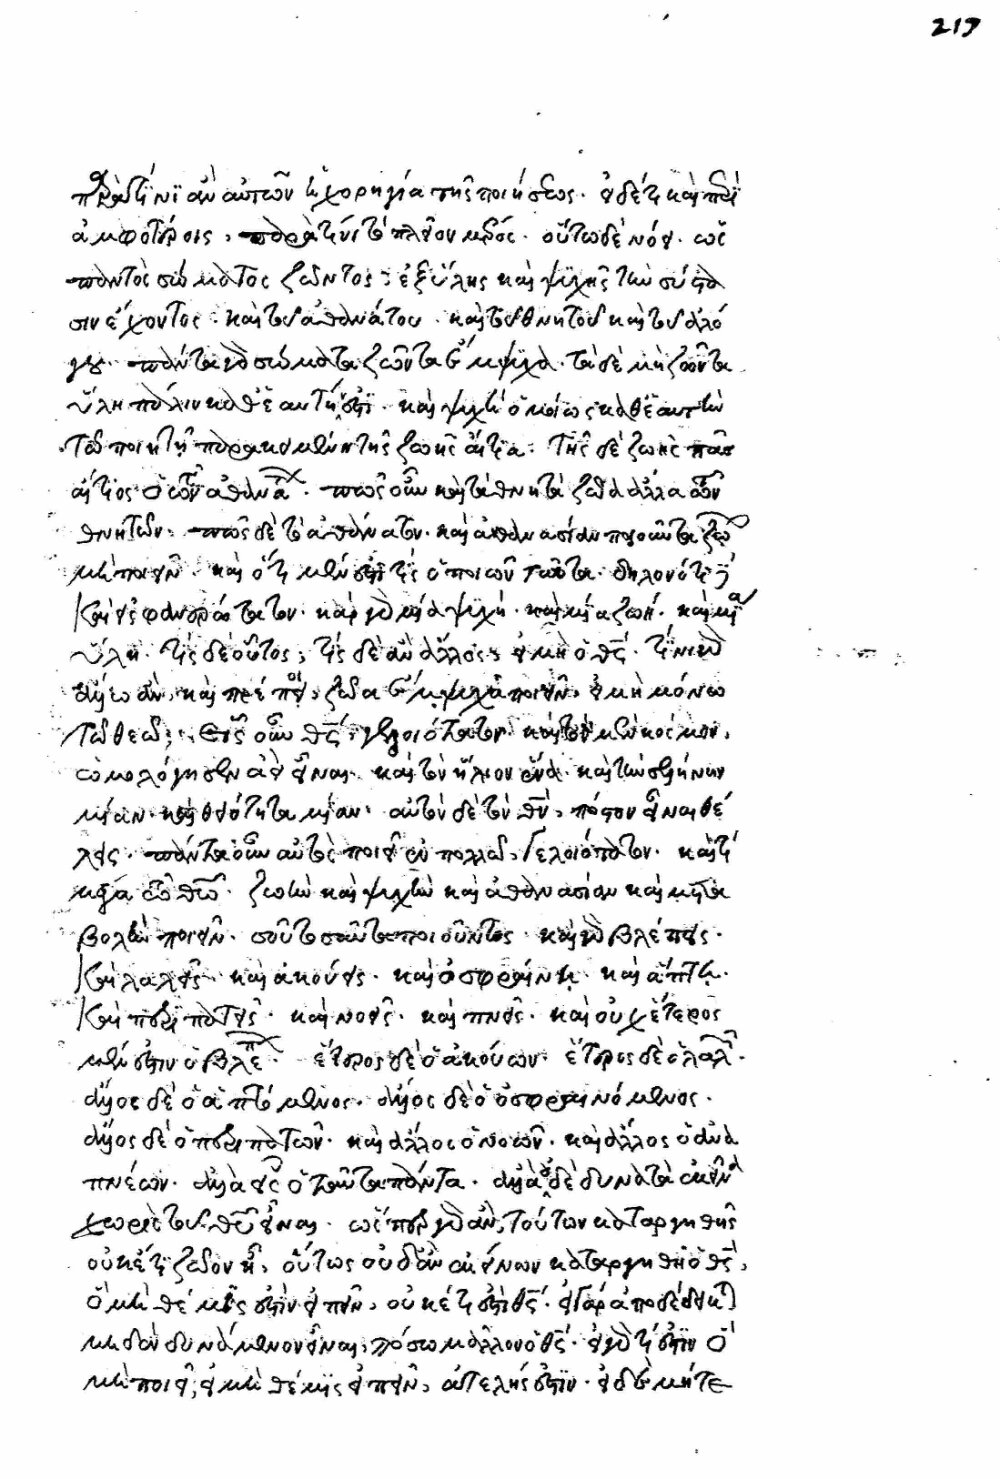 219
παρὰ τίνι ἂν αὐτῶν ἡ χορηγία τῆς ποιήσεως. εἰ δέ τι καὶ περὶ
ἀμφοτέροις, παρὰ τίνι τὸ πλεῖον μέρος. οὕτω δὲ νόει. ὡς
παντὸς σώματος ζῶντος, ἐξ ὕλης καὶ ψυχῆς τὴν σύστα
σιν ἔχοντος. καὶ τοῦ ἀθανάτου. καὶ τοῦ θνητοῦ καὶ τοῦ ἀλό
γου. πάντα γὰρ σώματα ζῶντα ἔμψυχα. τὰ δὲ μὴ ζῶντα
ὕλη πάλιν καθ' ἑαυτήν ἐστι. καὶ ψυχὴ ὁμοίως καθ' ἑαυτὴν
τῷ ποιητῇ παρακειμένη τῆς ζωῆς αἰτία. τῆς δὲ ζωῆς πᾶσ
αἴτιος ὁ τῶν ἀθανά. πῶς οὖν καὶ τὰ θνητὰ ζῷα ἄλλα τῶν
θνητῶν. πῶς δὲ τὸ ἀθάνατον. καὶ ἀθανασίαν ποιοῦν τὰ ζῷ
μὴ ποιεῖ. καὶ ὅτι μὲν ἐστί τις ὁ ποιῶν ταῦτα. δῆλον ὅτι δὲ
καὶ εἷς φανερώτατον. καὶ γὰρ μία ψυχὴ. καὶ μία ζωὴ. καὶ μία
ὕλη. τίς δὲ οὗτος, τίς δὲ ἂν ἄλλος, εἰ μὴ ὁ θς. τίνι γὰρ
ἄλλῳ ἂν καὶ πρέποι, ζῷα ἔμψυχα ποιεῖν, εἰ μὴ μόνῳ
τῷ θεῷ, εἷς οὖν θς. γελοιότατον. καὶ τὸν μὲν κόσμον,
ὡμολόγησεν ἀεὶ εἶναι. καὶ τὸν ἥλιον ἕνα. καὶ τὴν σελήνην
μίαν. καὶ θειότητα μίαν. αὐτὸν δὲ τὸν θν, πόστον εἶναι θέ
λεις. πάντα οὖν αὐτὸς ποιεῖ ἐν πολλῷ, γελοιότατον. καὶ τί
μέγα τῷ θῷ. ζωὴν καὶ ψυχὴν καὶ ἀθανασίαν καὶ μετα
βολὴν ποιεῖν. σοῦ τοσαῦτα ποιοῦντος. καὶ γὰρ βλέπεις.
καὶ λαλεῖς. καὶ ἀκούεις. καὶ ὀσφραίνῃ. καὶ ἅπτῃ.
καὶ περιπατεῖς. καὶ νοεῖς. καὶ πνεῖς. καὶ οὐχ ἕτερος
μέν ἐστιν ὁ βλέπ. ἕτερος δὲ ὁ ἀκούων. ἕτερος δὲ ὁ λαλῶ.
ἄλλος δὲ ὁ ἁπτόμενος. ἄλλος δὲ ὁ ὀσφραινόμενος.
ἄλλος δὲ ὁ περιπατῶν. καὶ ἄλλος ὁ νοῶν. καὶ ἄλλος ὁ ἀνα
πνέων. ἀλλὰ εἷς ὁ ταῦτα πάντα. ἀλλὰ οὐδὲ δυνατὰ ἐκεῖνα
χωρὶς τοῦ θεοῦ εἶναι. ὥσπερ γὰρ ἂν, τούτων καταργηθῆς
οὐκέτι ζῷον εἶ, οὕτως οὐδ' ἂν ἐκείνων καταργηθῇ ὁ θς,
ὃ μὴ θέμις ἐστὶν εἰπεῖν, οὐκέτι ἐστὶ θς. εἰ γὰρ ἀποδέδεικται
μηδὲν δυνάμενον εἶναι, πόσῳ μᾶλλον ὁ θς. εἰ γάρ τί ἐστιν ὃ
μὴ ποιεῖ, εἰ μὴ θέμις εἰπεῖν, ἀτελής ἐστιν. εἰ δὲ μήτε